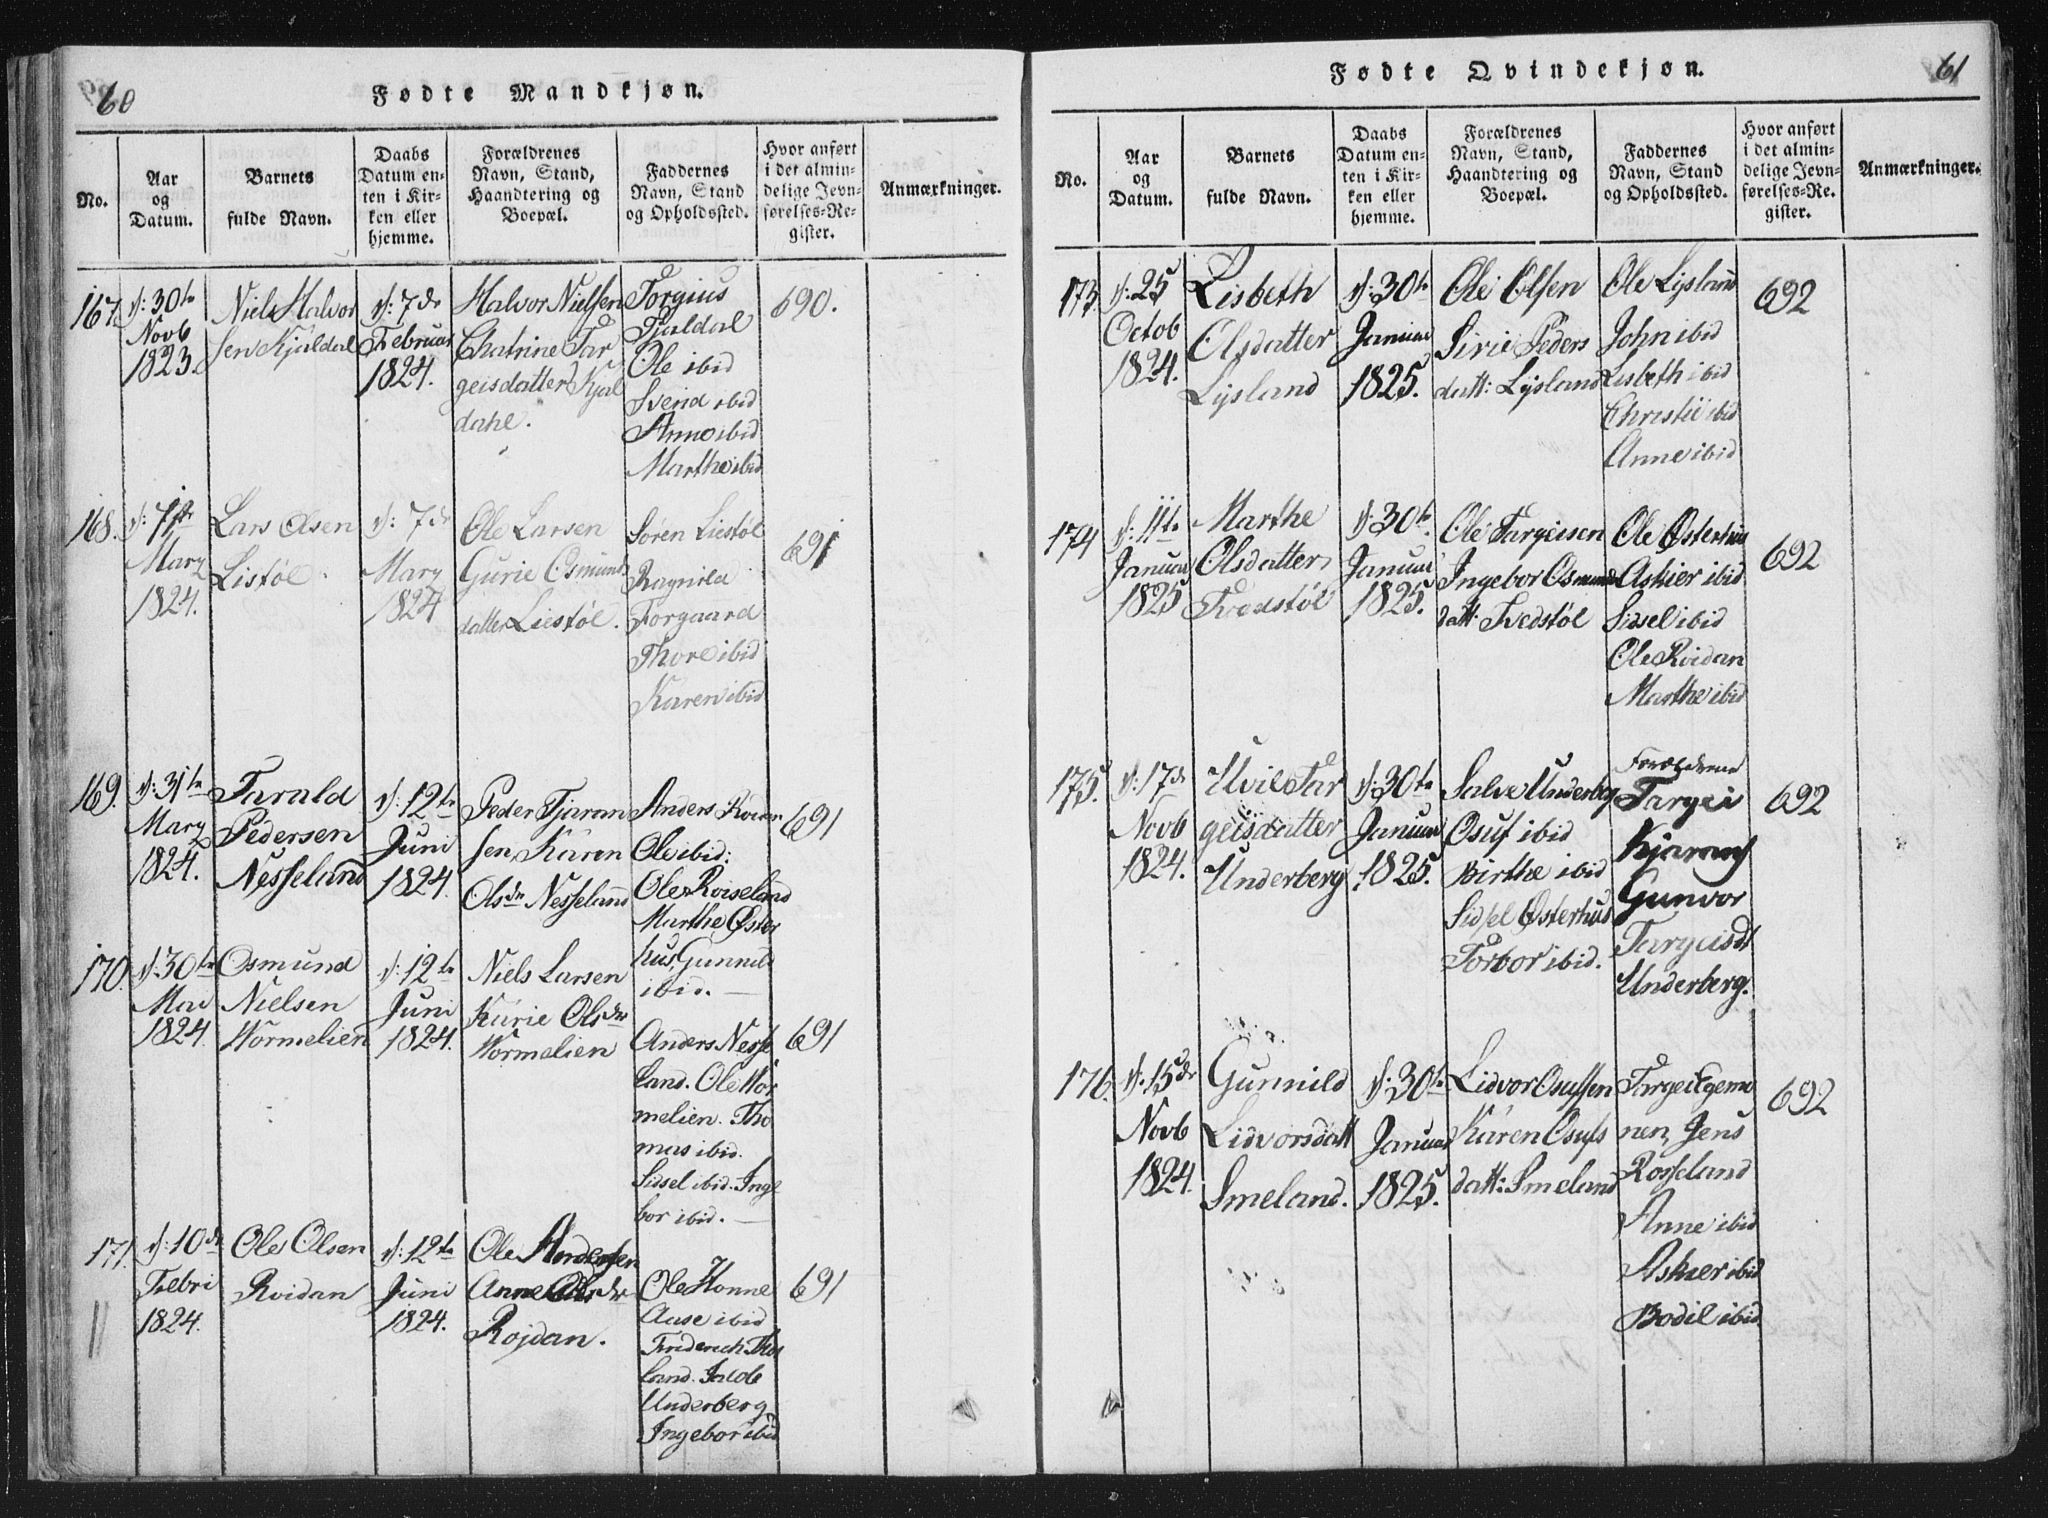 60
Fødte Mandkjøn.
No.
Aar
og
Datum.
Barnets
fulde Navn.
Daabs
Datum en-
ten i Kir-
ken eller
hjemme.
Forældrenes
Navn, Stand,
Haandtering og
Boepæl.
Faddernes
Navn, Stand
og Opholdssted.
Hvor anført
i det almin-
delige Jevn-
førelses-Re-
gister.
Anmærkninger.
167.
d: 30te
Novb
1823.
Niels Halvor
sen Kjaldal
d: 7de
Februar
1824.
Halvor Nielsen
Chatrine Tar
geisdatter Kjal
dahl.
Torgius
Tjaldal
Ole ibid
Svenid ibid
Anne ibid
Marthe ibid
690.
168.
Mary
1824.
Lars Olsen
Listøl
d: 7de
Mary
1824
Ole Larsen
Gurie Osmunds
datter Liestøl.
Søren Liestøl
Ragnild
Forgaard
Thore ibid
Karen ibid
691
169.
d: 31te
Mary
1824.
Tarald
Pedersen
Nesseland
d: 12te
Juni
1824.
Peder Tjaran
sen, Karen
Olsdr Nesseland
Anders
Ole ibid:
Ole Roiseland
Marthe Øster
hus, Gunnild
ibid.
691
170.
d: 30te
Mai
1824.
Osmund
Nielsen
Wormelien
d: 12te
Juni
1824.
Niels Larsen
Karie Olsdr
Wormelien
Anders Nesse
land. Ole Wor
melien. Tho
mas ibid.
Sidsel ibid. Inge
bor ibid.
691
171.
d: 10de
Febri
1824.
Ole Olsen
Roidan
d: 12te
Juni
1824.
Ole Andersen
Anne Olsdr
Rojdan.
Ole Honne
Aase ibid
Friderich
land. Jacob
Underberg
Ingebor ibid
691
61
Fødte Qvindekjøn.
No.
Aar
og
Datum.
Barnets
fulde Navn.
Daabs
Datum en-
ten i Kir-
ken eller
hjemme.
Forældrenes
Navn, Stand,
Haandtering og
Boepæl.
Faddernes
Navn, Stand
og Opholdssted.
Hvor anført
i det almin-
delige Jevn-
førelses-Re-
gister.
Anmærkninger.
173.
d: 25
Octob
1824.
Lisbeth
Olsdatter
Lysland
d: 30te
Januar
1825.
Ole Olsen
Sirie Peders
datt: Lysland
Ole Lysland
John ibid
Lisbeth ibid
Christie ibid
Anne ibid
692
174
d: 11te
Januar
1825
Marthe
Olsdatter
Tvedstøl
d: 30te
Januar
1825.
Ole Targeisen
Ingebor Osmunds
datt: Tvedstøl
Ole Østerhus
Askier ibid
Sidsel ibid
Ole Roidan
Marthe ibid
692
175.
d: 17de
Novb
1824.
Uvil Tar
geisdatter
Underberg
d: 30te
Januar
1825.
Salve Underberg
Osuf ibid
Birthe ibid
Sidsel Østerhus
Torbor ibid.
Forældrene
Targei
Kjarans
Gunvor
Targeisdt
Underberg.
692
176.
d: 15de
Novb
1824.
Gunnild
Lidvorsdatt
Smeland.
d: 30te
Januar
1825.
Lidvor Osufsen
Karen Osufs
datt: Smeland
Targei Egeme
nen, Jens
Rosseland
Anne ibid
Askier ibid
Bodil ibid
692